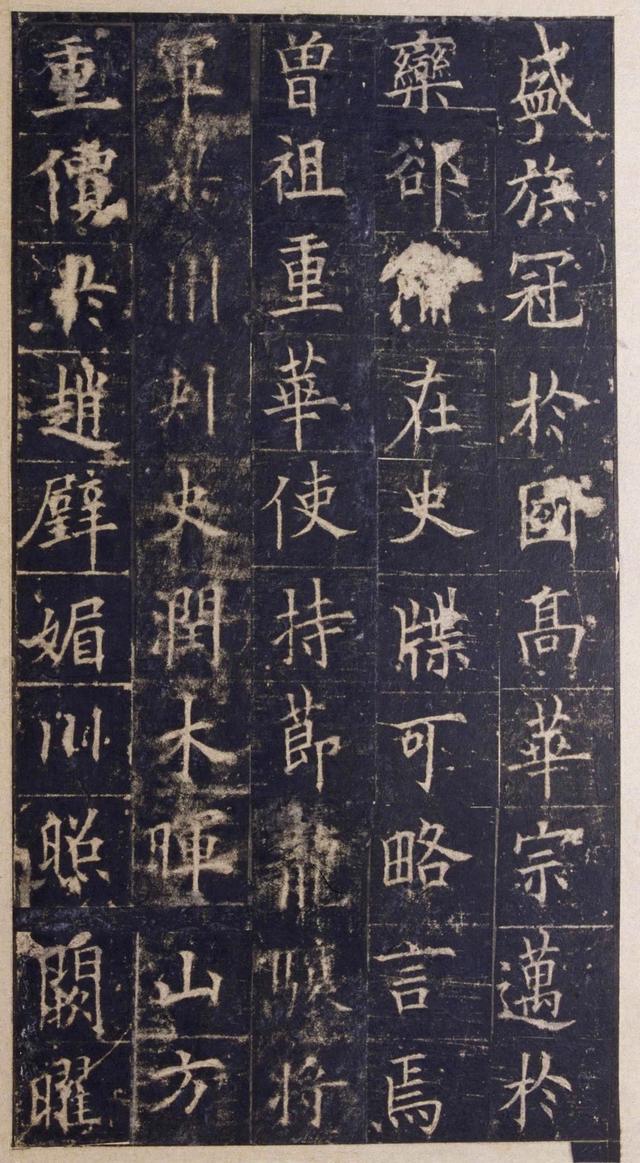 盛族冠於國高華宗邁於
欒郤在史牒可略言焉
曾祖重華使持節龍驤將
軍州刺史潤木暉山方
重價於趙璧媚川照闕曜